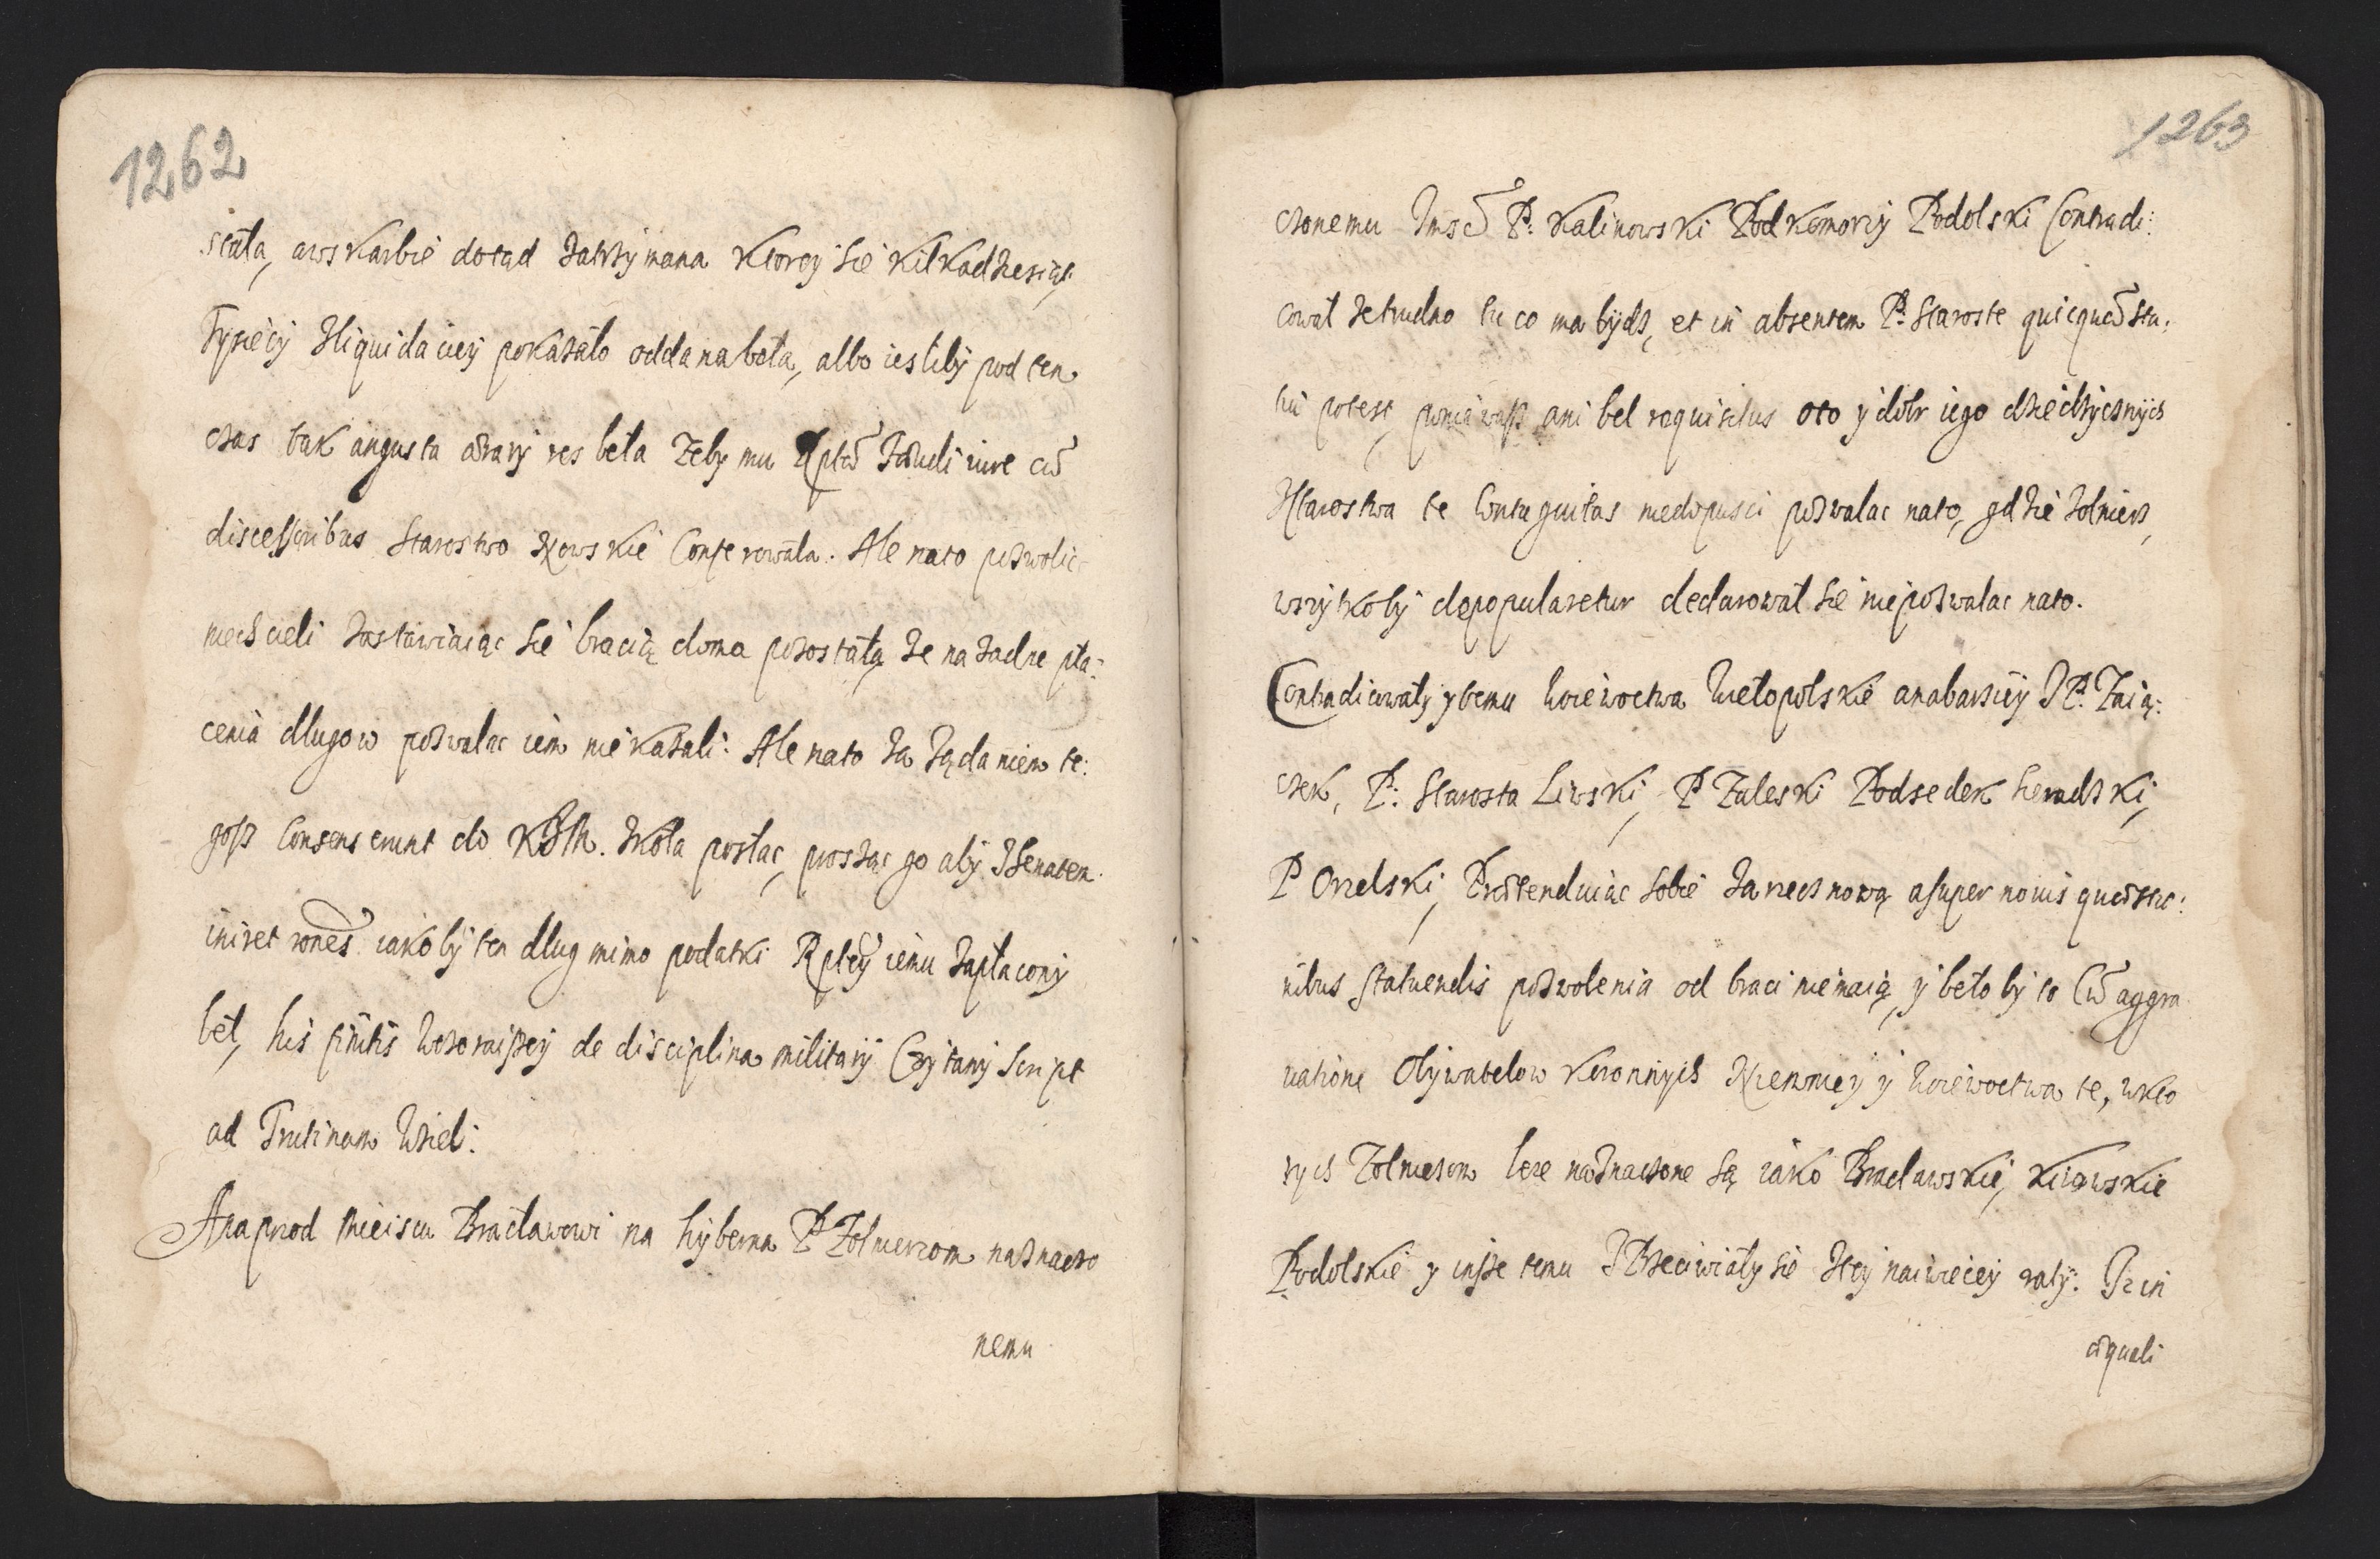 1262
stała, awskarbie dotąd zatrzymana ktorey sie kilkadziesiąt
Tysięcy zliquidaciey pokazało oddana beła, albo iesliby pod ten
czas tak angusta ærary res beła zeby mu Rpta iure cũ
discessoribus Starostwo Kowskie Conferowała. Ale nato pozwolic
niechcieli zastawiaiąc sie bracią doma pozostałą ze na zadne pła:
cenia dlugow pozwalac iem nie kazali: Ale nato za ządaniem te:
goſz Consenserunt do KJM. zkoła posłac, prosząc go aby zSenatem
iniret rones iakoby ten dlug mimo podatki Rptey iemu zapłacony
beł, his finitis wczoraiszey de disciplina military Czytany Script
ad Trutinam wzieli:
A naprzod mieiscu Bracławowi na hyberna P Zolnierzom naznaczo
nemu
1263
czonemu Jmsc P: Kalinowski Podkomorzy Podolski Contradi:
cował ze trudno tu co ma bydz, et in absentem P: Staroste quicquã sta:
tui potest, poniewaſz ani beł requisitus oto y dobr iego dziedzycznych
zstarostwa te contiguitas niedopusci pozwalac nato, gdzie zolnierz,
wszytkoby depopularetur declarował sie niepozwalac nato.
Contradicowały y temu woiewoctwa wielopolskie anabarziey JP. Zaią:
czek, P: Starosta Liwski, P Zaleski Podsedek Sieradzki,
P Orzelski, Prætenduiąc sobie za rzecz nową a super nouis quæstio:
nibus statuendis pozwolenia od braci niemaią, y beło by to Cũ aggra
uatione Obywatelow Koronnych Niemniey y woiewoctwa te, wkto
rych Zolnierzom leze naznaczone są iako Bracławskie, Kiiowskie
Podolskie y insze temu sie ztey naiwiecey raty: Iz in
æquali